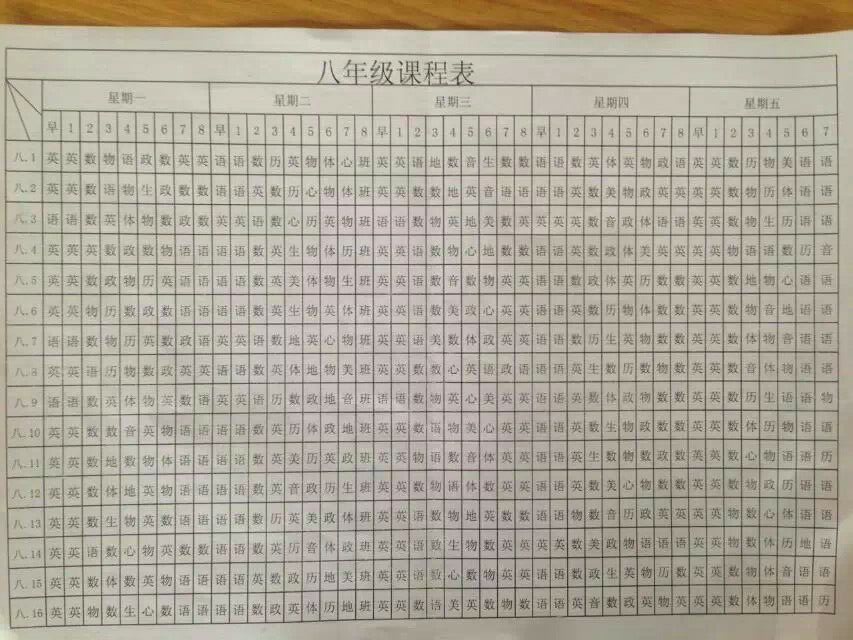 八年级课程表
星期一 星期二 星期三 星期四 星期五
早 1 2 3 4 5 6 7 8 早 1 2 3 4 5 6 7 8 早 1 2 3 4 5 6 7 8 早 1 2 3 4 5 6 7 8 早 1 2 3 4 5 6 7
八.1 英 英 数 物 语 政 数 英 英 语 语 数 历 英 物 体 心 班 英 英 语 地 数 音 生 数 数 语 语 数 英 体 英 物 政 语 英 英 数 历 物 美 语 语
八.2 英 英 数 语 物 生 政 数 数 语 语 英 数 历 心 物 体 班 英 英 数 数 地 英 音 语 语 语 语 英 数 美 物 政 英 英 英 英 数 物 历 体 语 语
八.3 语 语 数 英 体 物 数 政 数 英 英 语 数 心 历 英 物 班 语 语 数 物 英 地 美 数 英 英 英 英 数 音 政 体 语 语 英 英 数 物 生 历 语 语
八.4 英 英 英 数 政 数 物 语 语 语 语 数 英 生 物 体 历 班 英 英 语 数 物 心 地 数 数 语 语 英 数 政 体 美 英 英 英 英 物 语 语 数 历 音
八.5 英 英 数 政 物 历 英 语 语 语 语 数 英 美 体 物 生 班 英 英 语 数 音 数 物 英 英 语 语 数 政 体 英 历 数 数 英 英 数 地 物 心 语 语
八.6 英 英 物 历 数 政 数 语 语 语 语 数 英 生 物 英 体 班 英 英 语 数 美 政 心 英 英 语 语 英 数 历 物 体 数 数 英 英 数 物 音 地 语 语
八.7 语 语 数 物 历 英 数 政 语 英 英 语 数 地 英 心 物 班 英 英 语 美 数 体 政 英 英 语 语 数 历 生 英 物 数 数 英 英 数 体 物 音 语 语
八.8 英 英 语 历 物 数 政 英 英 语 语 数 英 体 地 物 美 班 英 英 数 数 心 英 语 政 语 语 语 英 生 数 历 数 物 数 英 英 数 音 体 物 语 语
八.9 语 语 数 英 体 物 英 数 语 英 英 语 历 数 政 地 音 班 语 语 数 物 英 心 美 英 英 语 语 英 数 体 政 物 数 数 英 英 数 历 生 语 语 物
八.10 英 英 数 数 音 英 物 语 语 语 语 数 英 历 体 政 地 班 英 英 数 语 物 美 心 英 英 语 语 英 数 生 物 政 数 数 英 英 数 体 历 物 语 语
八.11 英 英 数 地 数 物 体 语 语 语 语 数 英 美 历 英 政 班 英 英 物 语 数 音 体 英 英 语 语 英 生 数 物 数 政 数 英 英 数 心 物 语 语 历
八.12 英 英 数 体 地 英 物 语 语 语 语 数 英 音 政 历 生 班 英 英 数 物 语 体 数 英 英 语 语 英 数 美 心 物 数 数 英 英 数 物 政 历 语 语
八.13 英 英 数 生 物 英 数 语 语 语 语 数 历 英 美 政 体 班 英 英 语 数 物 地 英 数 数 语 语 物 数 音 历 政 英 英 英 英 物 数 心 体 语 语
八.14 英 英 语 数 心 物 英 数 数 语 语 数 英 历 音 体 政 班 英 英 语 数 生 物 数 英 英 英 英 数 美 政 物 语 语 语 英 英 物 数 体 历 地 语
八.15 英 英 数 体 数 英 物 语 语 语 语 英 数 政 历 地 美 班 英 英 语 数 心 数 物 英 英 语 语 数 政 生 英 物 历 数 英 英 数 物 体 音 语 语
八.16 英 英 物 数 生 心 数 语 语 语 语 数 政 英 体 历 地 班 英 英 数 语 美 英 数 物 数 语 语 英 音 数 政 英 物 数 英 英 数 体 物 语 语 历